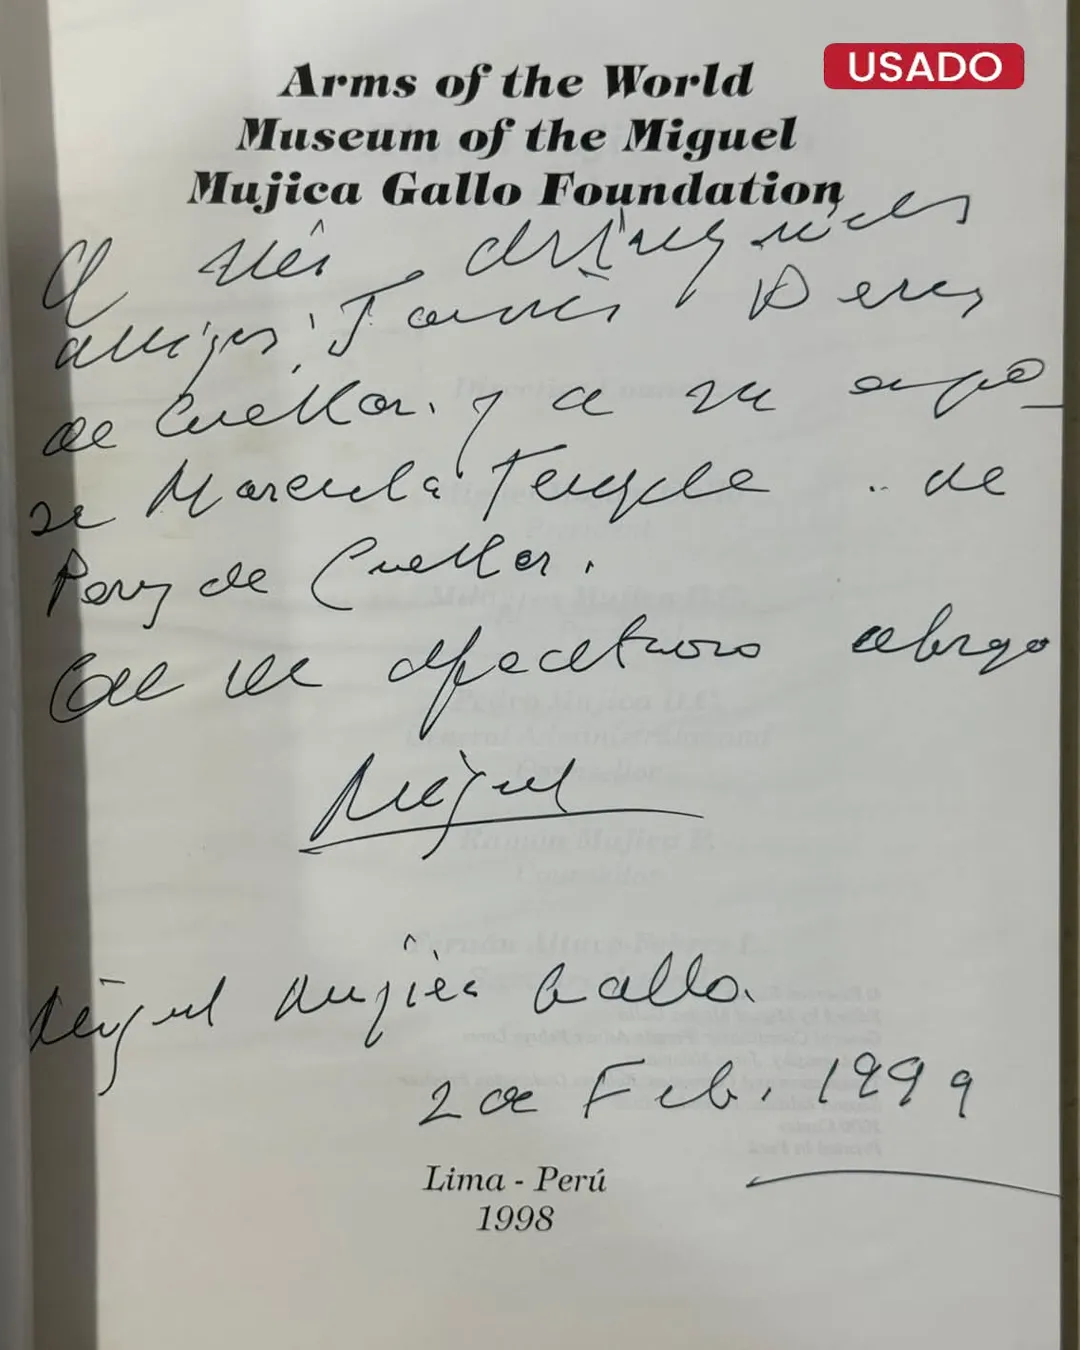 USADO
Arms of the World
Museum of the Miguel
Mujica Gallo Foundation
A mis distinguidos
amigos, Javier Perez
de Cuellar. y a su espo_
sa Marcela Temple .. de
Perez de Cuellar.
Con un afectuoso abrazo
Miguel
Miguel Mujica Gallo.
2 de Feb. 1999
Lima - Perú
1998